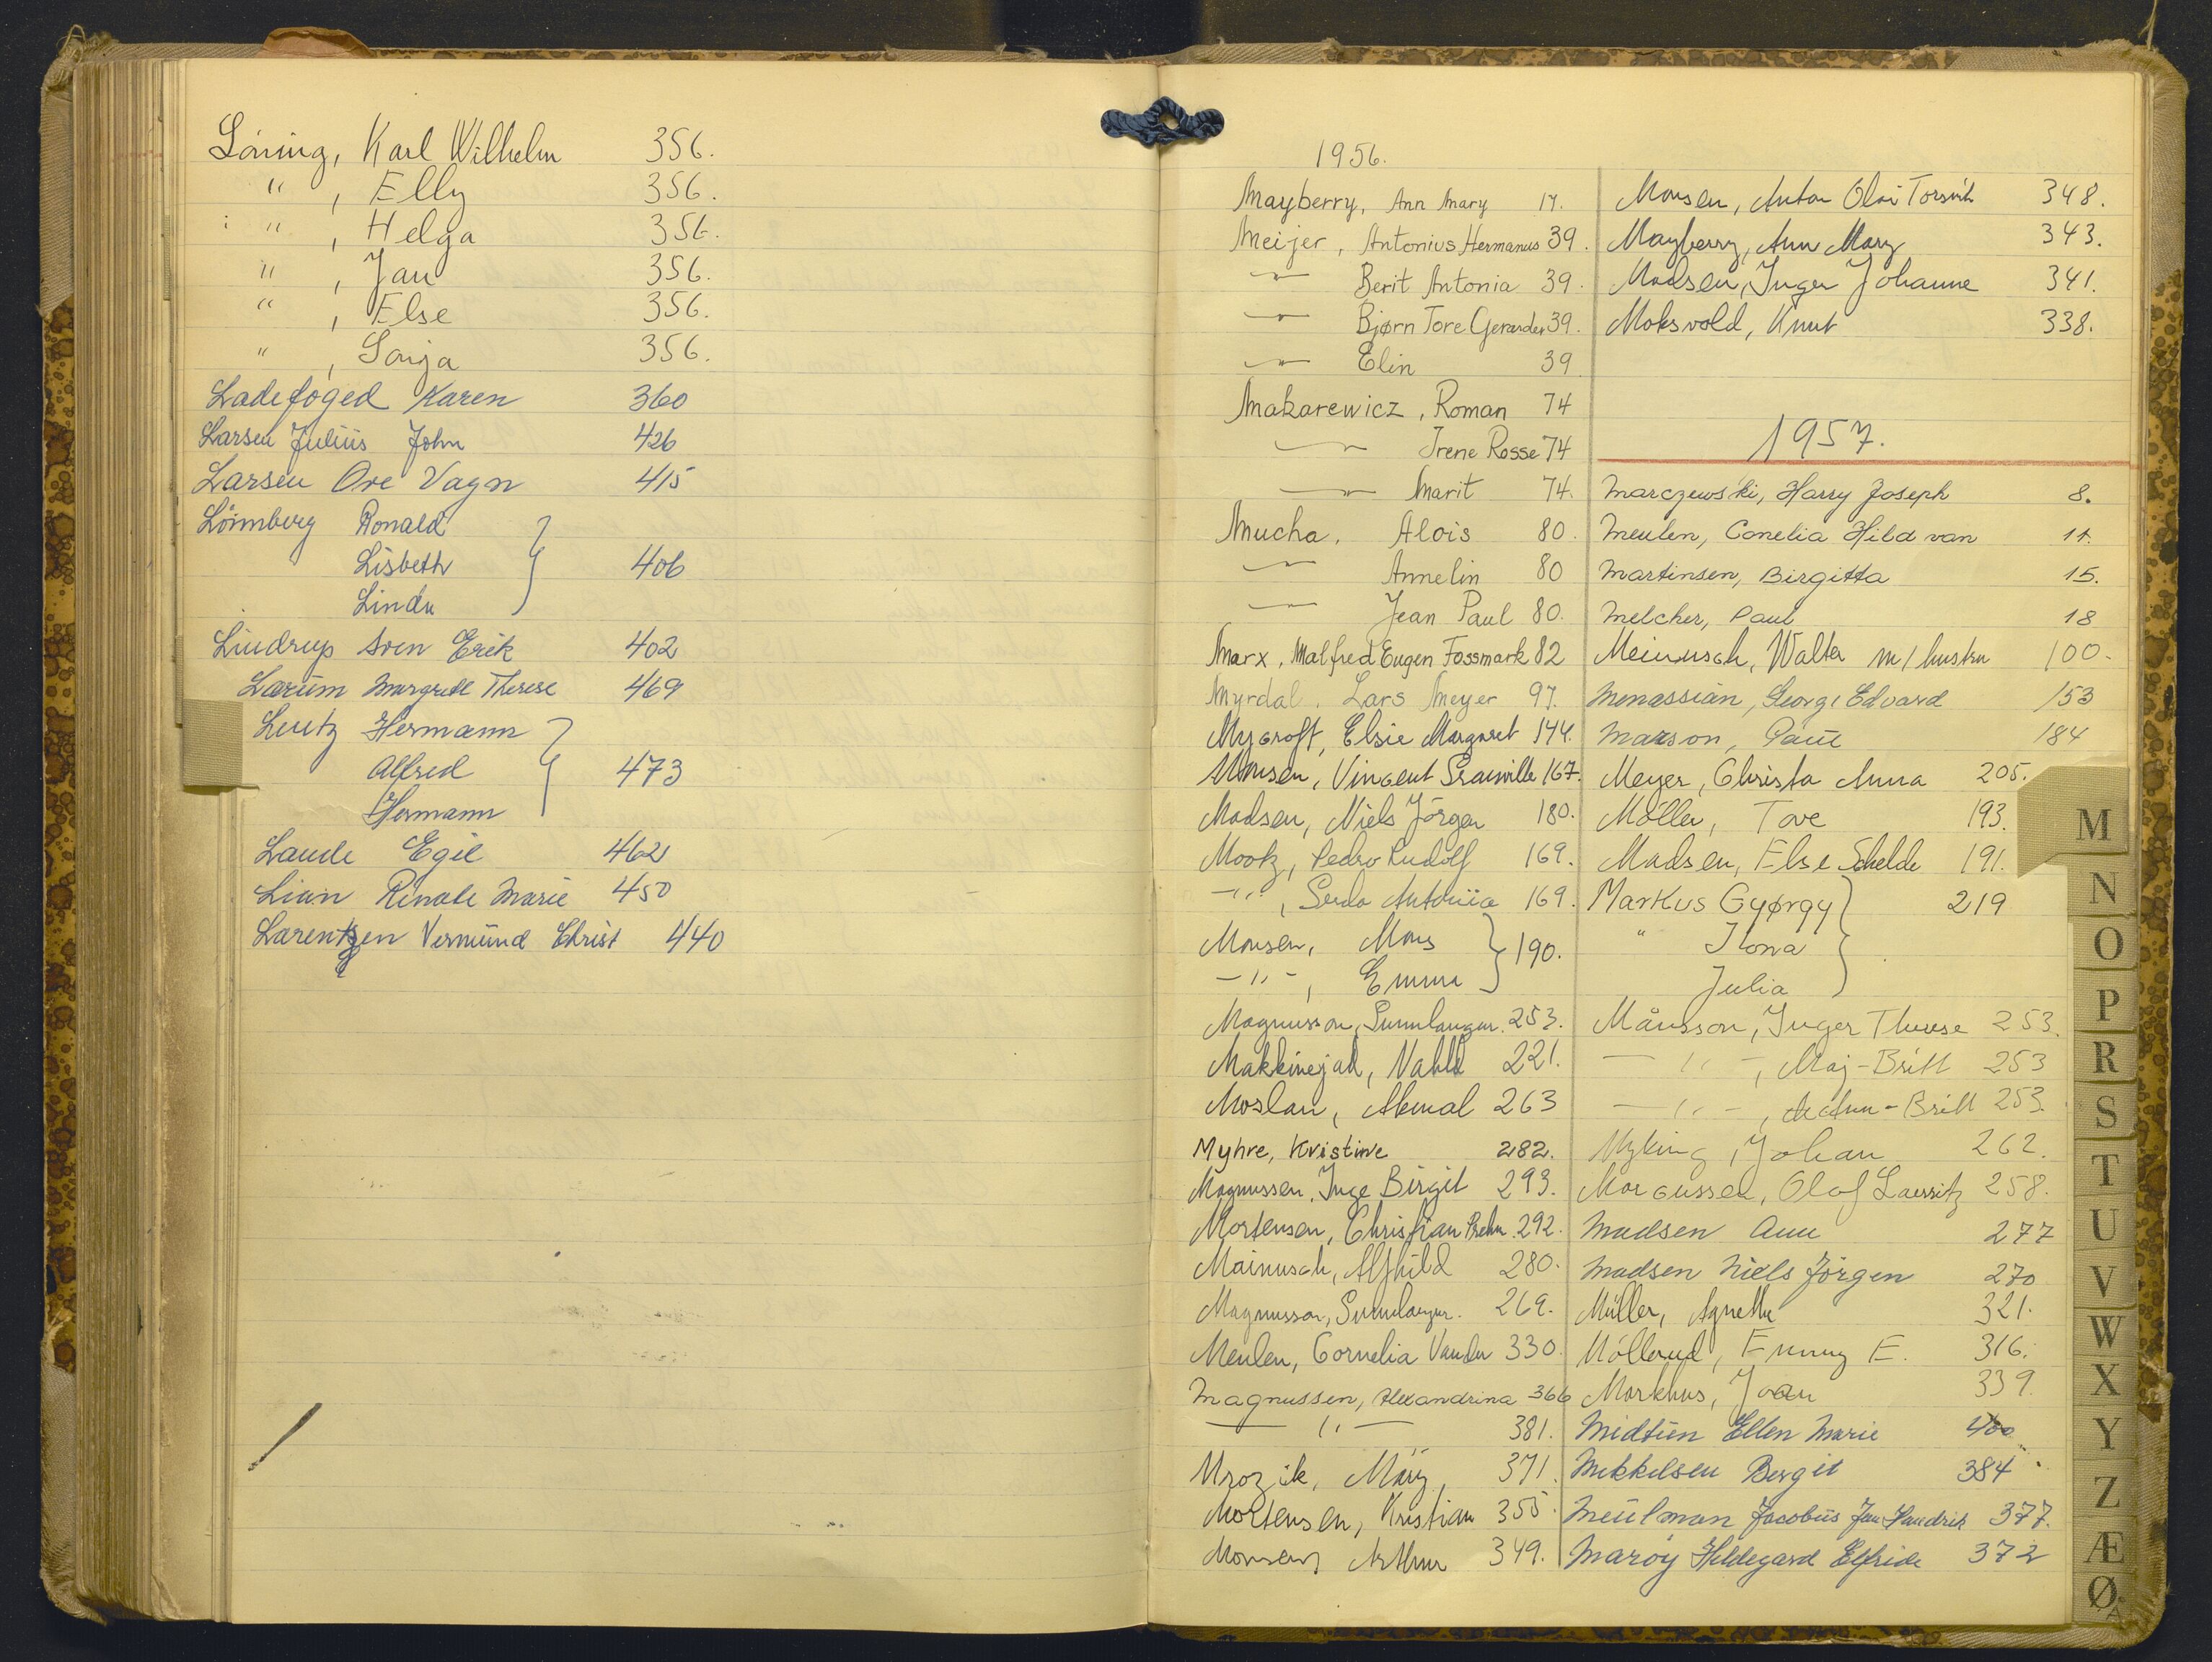 Löning, Karl Wilhelm 356.
" , Elly 356.
" , Helga 356.
" , Jan 356.
" , Else 356.
" , Sonja 356.
Ladefoged Karen 360
Larsen Julius John 426
Larsen Ove Vagn 415
Lönnberg Ronald
Lisbeth 406
Linda
Lindrup Sven Erik 402
Lærum Margrete Therese 469
Lutz Hermann
Alfred 473
Hermann
Laude Egil 462
Lian Renate Marie 450
Larentzen Vermund Christ 440
1956.
Mayberry, Ann Mary 17.
Meijer, Antonius Hermanus 39.
—"— Berit Antonia 39.
—"— Bjørn Tore Gerarder 39.
—"— Elin 39
Makarewicz, Roman 74
—"— Irene Rosse 74
—"— Marit 74.
Mucha, Alois 80.
—"— Annelin 80
—"— Jean Paul 80.
Marx, Malfred Eugen Fossmark 82
Myrdal, Lars Meyer 97.
Mycroft, Elsie Margaret 144.
Monsen, Vincent 167.
Madsen, Niels Jörgen 180.
Mootz, Pedro Rudolf 169.
—"— , Gerda Antonia 169.
Monsen, Mons 190.
—"— , Emma
Magnusson, Gunnlaugur. 253.
Makkinejad, Vahid 221.
Moslan, Akmal 263
Myhre, Kristine 282.
Magnussen, Inge Birgit 293.
Mortensen, Christian Prehn. 292.
Mainusch, Alfhild 280.
Magnusson, Gunnlaugur. 269.
Meulen, Cornelia Vander 330.
Magnussen, Alexandrina 366
—"— 381.
Mrozik, Mary 371.
Mortensen, Kristian 355.
Monsen, Arthur 349.
Monsen, Anton Olai Torsvik 348.
Mayberry, Ann Mary 343.
Madsen, Inger Johanne 341.
Moksvold, Knut 338.
1957.
Marczewski, Harry Joseph 8.
Meulen, Conelia Hild van 11.
Martinsen, Birgitta 15.
Melcher, Paul 18
Meinusch, Walter m/hustru 100.
Menassian, Georg Edvard 153
Maxson, Paul 184
Meyer, Christa Anna 205.
Möller, Tove 193.
Madsen, Else Schelde 191.
Markus György 219
" Ilona
Julia
Månsson, Inger Therese 253.
—"— , Maj-Britt 253
—"— , Ann-Britt 253.
Myking, Johan 262.
Marcussen, Olaf Laurritz 258.
Madsen Ann 277
Madsen Niels Jörgen 270
Müller, Agnethe 321.
Möllerud, Emmy E. 316.
Markhus, Ivan 339.
Midtun Ellen Marie 400
Mikkelsen Bergit 384
Meulman Jacobus Jan Handrik 377.
Marøy Hildegard Elfride 372
M
N
O
P
R
S
T
U
V
W
X
Y
Z
Æ
Ø
Å